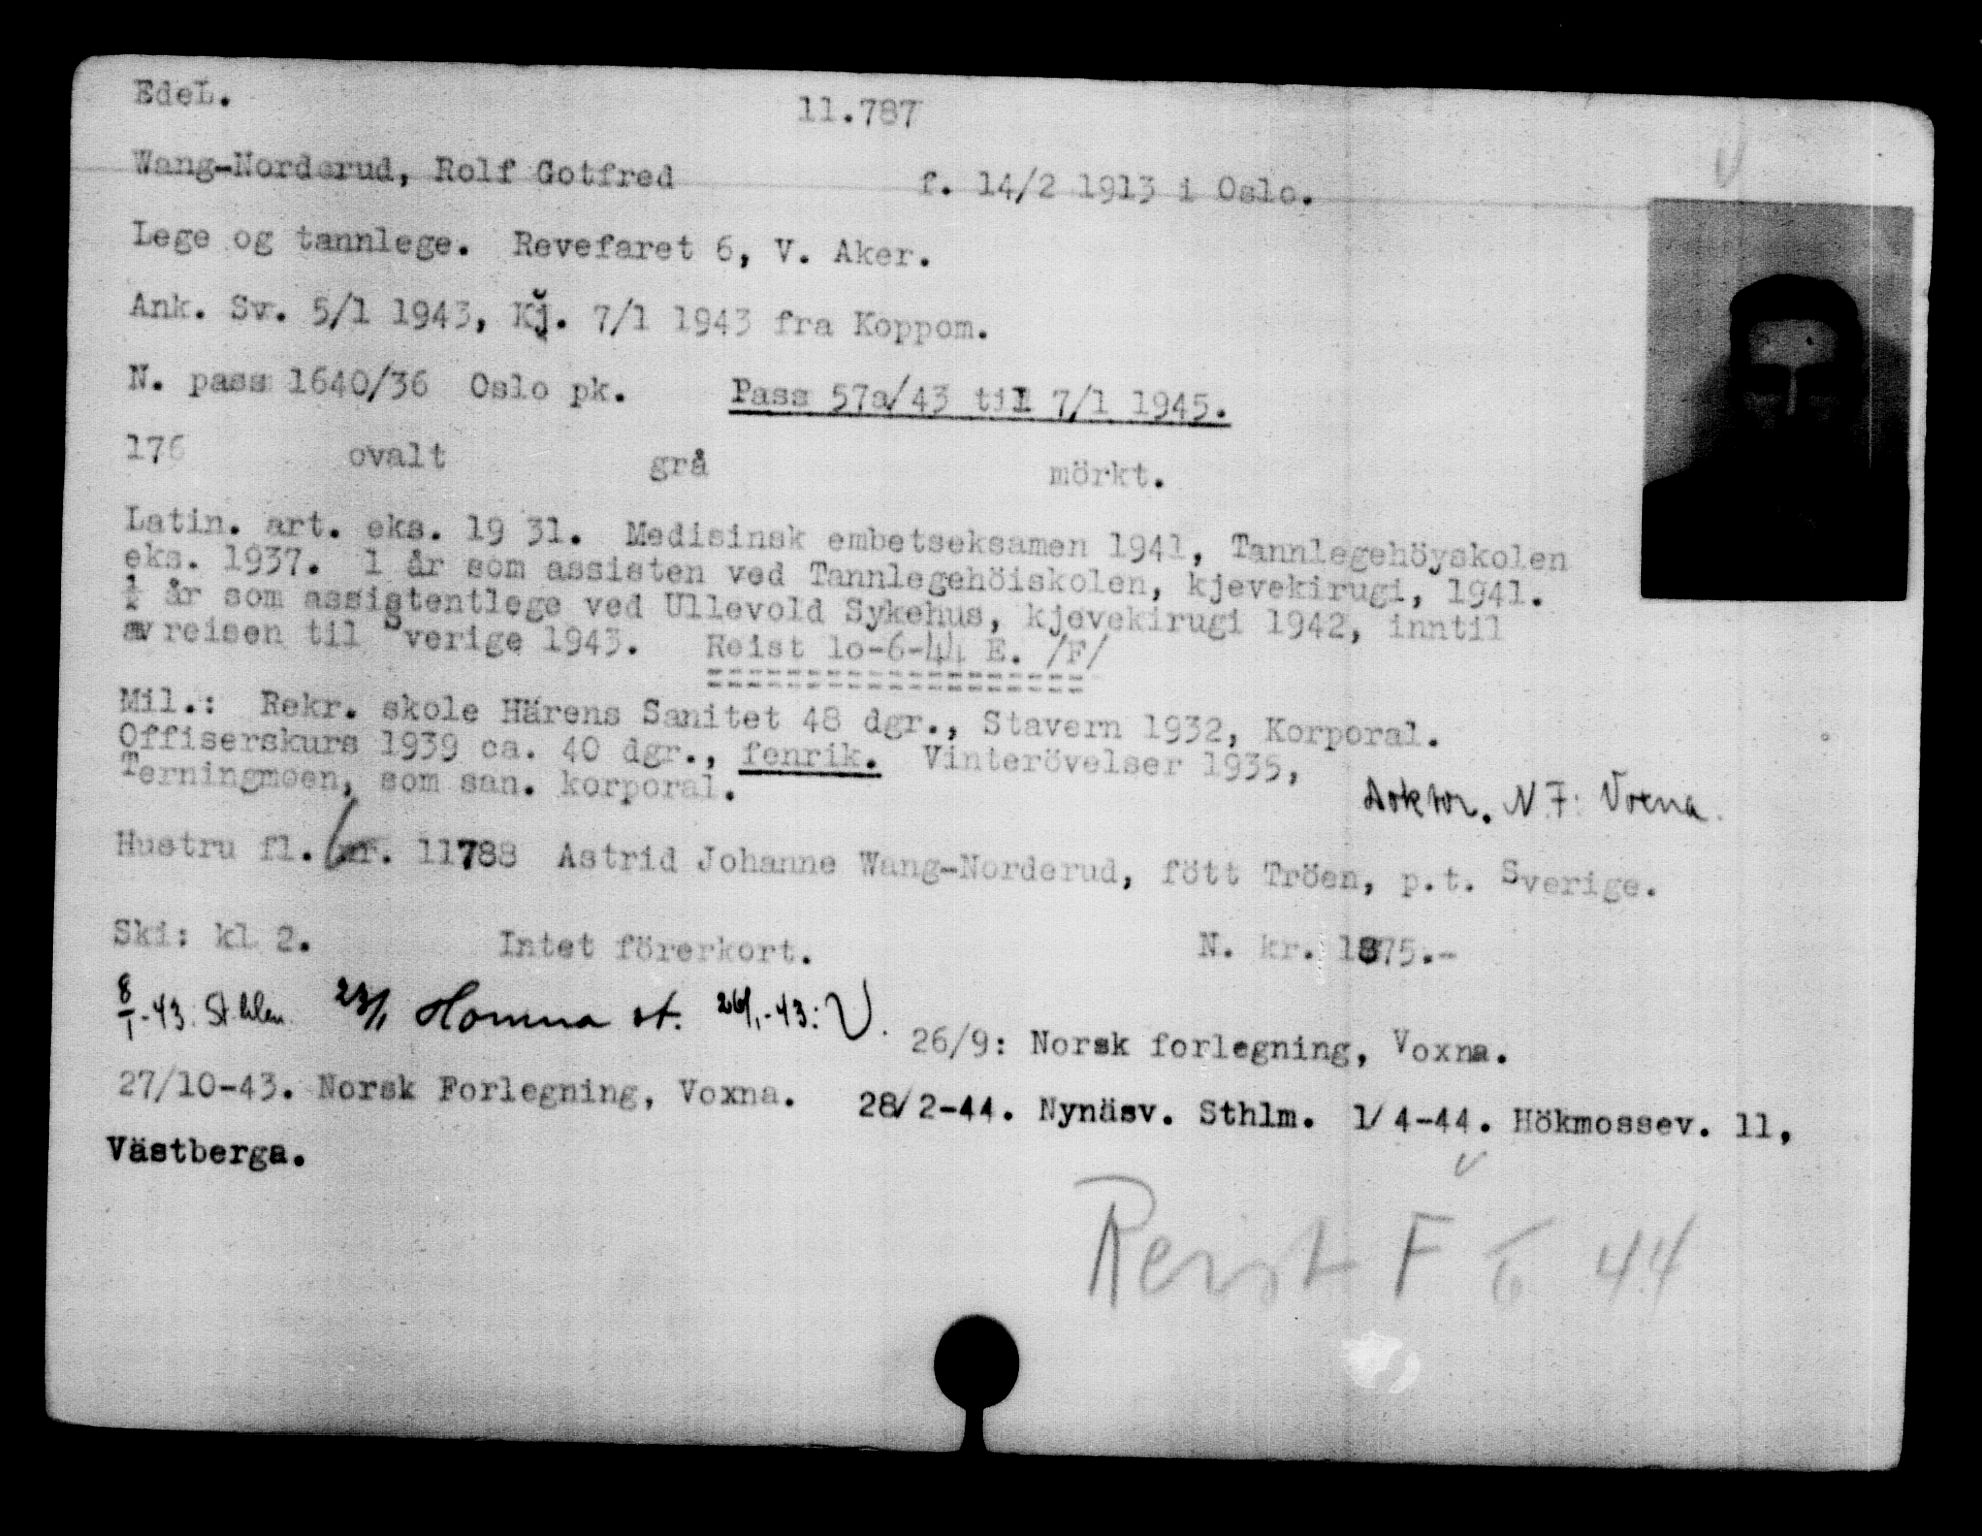 EdeL. 11.787
Wang-Norderud, Rolf Gotfred f. 14/2 1913 i Oslo.
Lege og tannlege. Revefaret 6, V. Aker.
Ank. Sv. 5/1 1943, Kj. 7/1 1943 fra Koppom.
N. pass 1640/36 Oslo pk. Pass 57a/43 til 7/1 1945.
176 ovalt grå mörkt.
Latin. art. eks. 19 31. Medisinsk embetseksamen 1941, Tannlegehöyskolen
eks. 1937. 1 år som assisten ved Tannlegehöiskolen, kjevekirugi, 1941.
½ år som assistentlege ved Ullevold Sykehus, kjevekirugi 1942, inntil
avreisen til Sverige 1943. Reist 1o-6-44 E. /F/
Mil.: Rekr. skole Härens Sanitet 48 dgr., Stavern 1932, Korporal.
Offiserskurs 1939 ca. 40 dgr., fenrik. Vinterövelser 1935,
Terningmoen, som san. korporal.
Doktor. N.F. Voxna.
Hustru fl. nr. 11788 Astrid Johanne Wang-Norderud, fött Tröen, p.t. Sverige.
Ski: kl 2. Intet förerkort. N. kr. 1875.-
8/1-43. Sthlm. 23/1 Homna st. 26/1-43: V. 26/9: Norsk forlegning, Voxna.
27/10-43. Norsk Forlegning, Voxna. 28/2-44. Nynäsv. Sthlm. 1/4-44. Hökmossev. 11,
Västberga.
Reist F 6 44